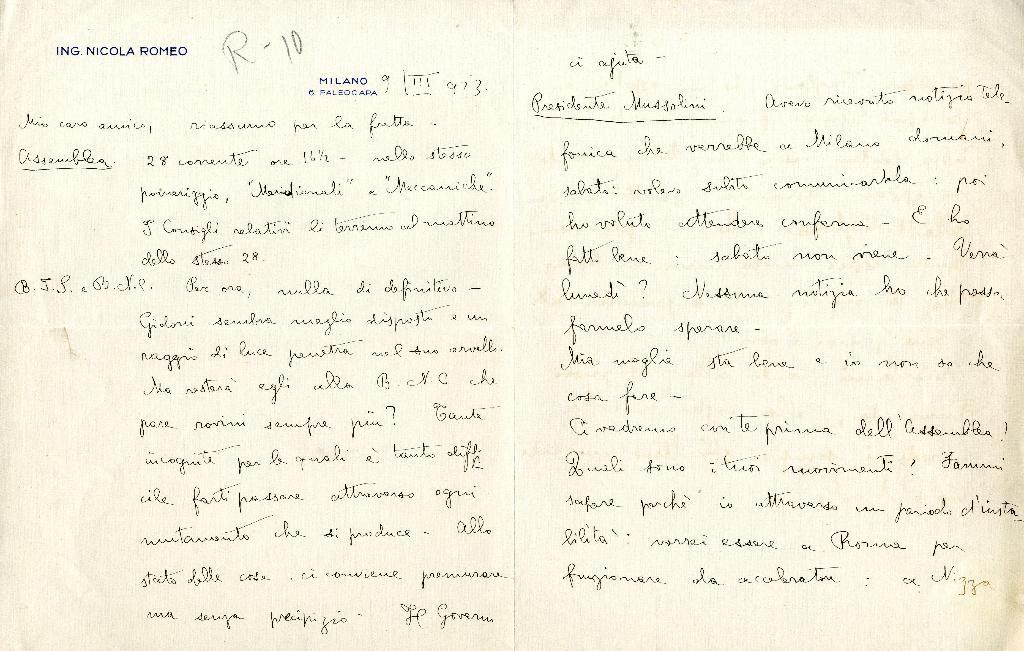 ING. NICOLA ROMEO
R-10
MILANO 9 III 923.
6. PALEOCAPA
Mio caro amico, riassumo per la fretta.
Assemblea. 28 corrente ore 16½ - nello stesso
pomeriggio, "Meridionali" e "Meccaniche".
I Consigli relativi li terremo al mattino
dello stesso 28.
B.I.S. e B.N.C. Per ora, nulla di definitivo -
Gidoni sembra meglio disposto e un
raggio di luce penetra nel suo cervello.
Ma resterà egli alla B.N.C che
pare rovini sempre più? Tante
incognite per le quali è tanto diffi
cile farti passare attraverso ogni
mutamento che si produce - Allo
stato delle cose ci conviene premurare
ma senza precipizio - Il Governo
ci ajuta -
Presidente Mussolini. Avevo ricevuto notizia tele-
fonica che verrebbe a Milano domani,
sabato: volevo subito comunicartela: poi
ho voluto attendere conferma - E ho
fatto bene: sabato non viene. Verrà
lunedì? Nessuna notizia ho che possa
farmelo sperare -
Mia moglie sta bene e io non so che
cosa fare -
Ci vedremo con te prima dell'Assemblea?
Quali sono i tuoi movimenti? Fammi
sapere perchè io attraverso un periodo d'insta-
bilità: vorrei essere a Roma per
funzionare da acceleratore: a Nizza